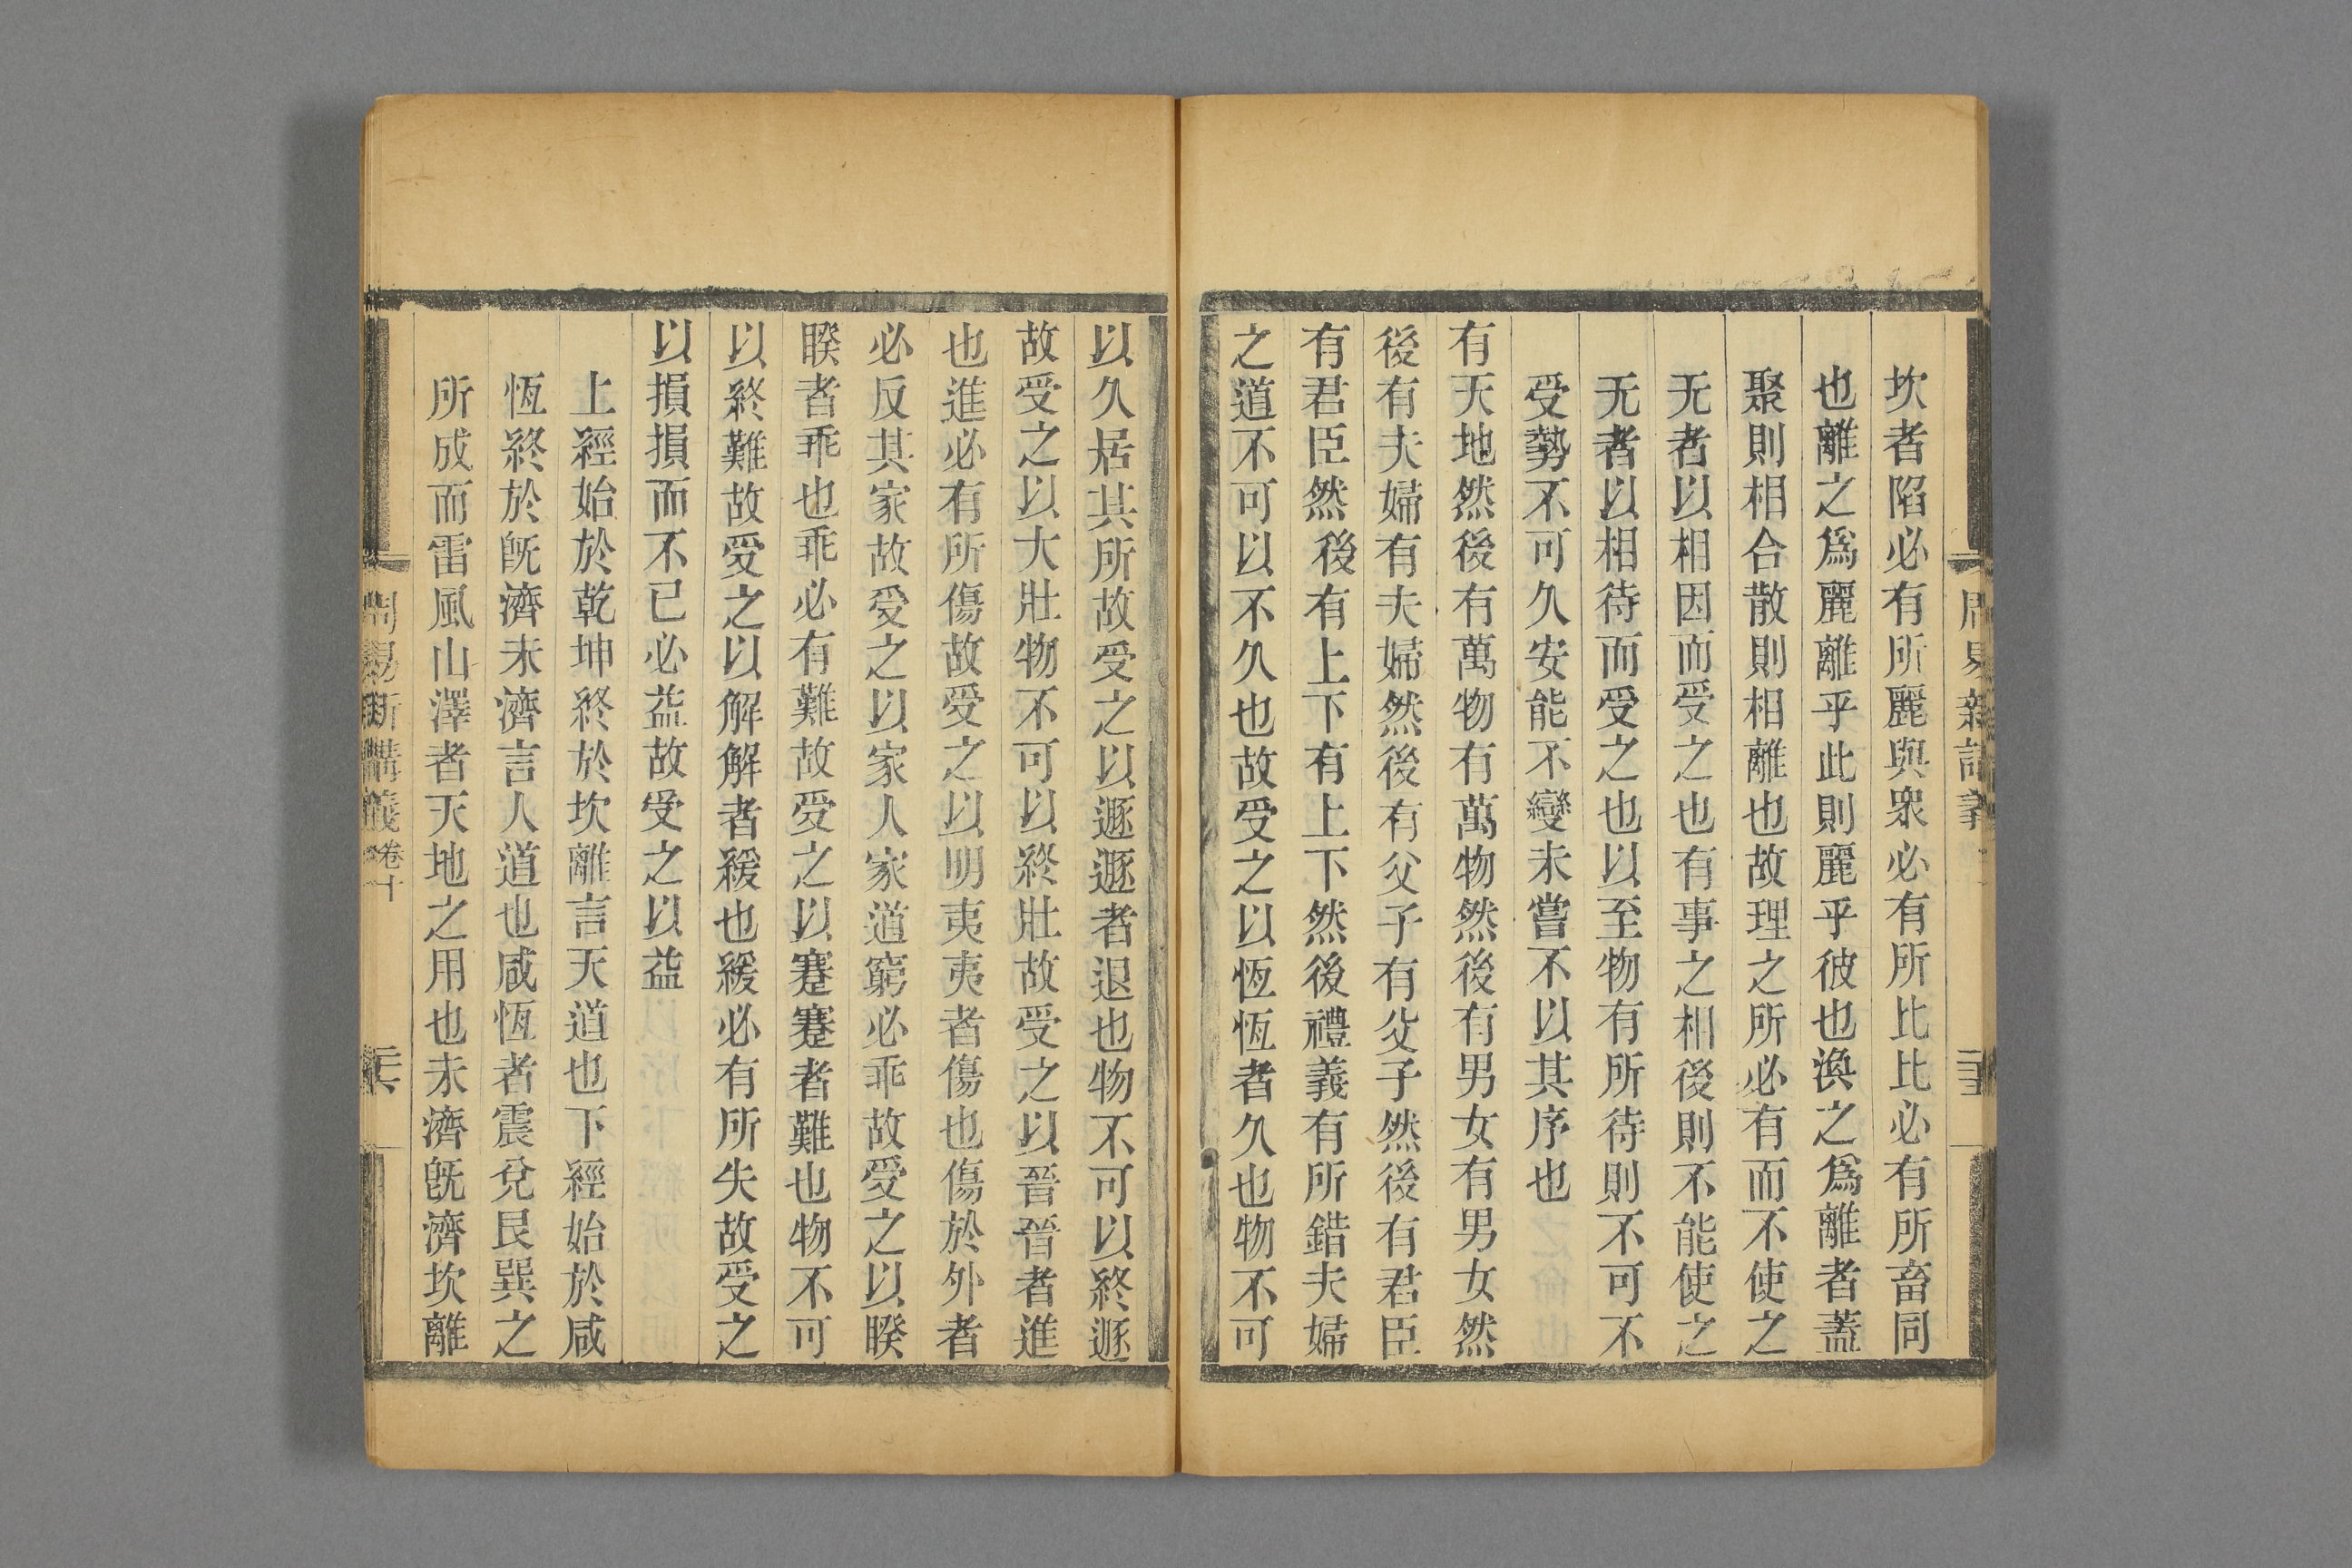 坎者陷必有所麗與衆必有所比比必有所畜同
也離之爲麗離乎此則麗乎彼也渙之爲離者蓋
聚則相合散則相離也故理之所必有而不使之
无者以相因而受之也有事之相後則不能使之
无者以相待而受之也以至物有所待則不可不
受勢不可久安能不變未嘗不以其序也
有天地然後有萬物有萬物然後有男女有男女然
後有夫婦有夫婦然後有父子有父子然後有君臣
有君臣然後有上下有上下然後禮義有所錯夫婦
之道不可以不久也故受之以恆恆者久也物不可
以久居其所故受之以遯遯者退也物不可以終遯
故受之以大壯物不可以終壯故受之以晉晉者進
也進必有所傷故受之以明夷夷者傷也傷於外者
必反其家故受之以家人家道窮必乖故受之以睽
睽者乖也乖必有難故受之以蹇蹇者難也物不可
以終難故受之以解解者緩也緩必有所失故受之
以損損而不已必益故受之以益
上經始於乾坤終於坎離言天道也下經始於咸
恆終於旣濟未濟言人道也咸恆者震兌艮巽之
所成而雷風山澤者天地之用也未濟旣濟坎離
周易新講義 卷十 二六